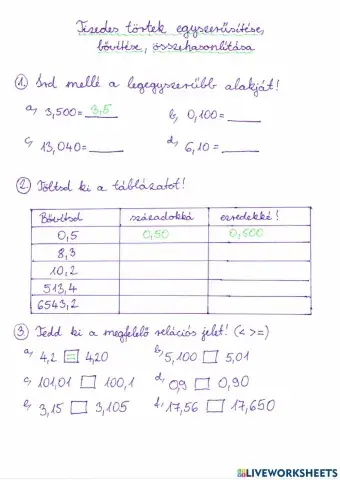 Tizedes törtek egyszerűsítése,
bővítése, összehasonlítása
① Írd mellé a legegyszerűbb alakját!
a, 3,500= 3,5 b, 0,100=____
c, 13,040=____ d, 6,10=____
② Töltsd ki a táblázatot!
Bővítsd századokká ezredekké!
0,5 0,50 0,500
8,3
10,2
513,4
6543,2
③ Tedd ki a megfelelő relációs jelet! (< > =)
a, 4,2 = 4,20 b, 5,100 □ 5,01
c, 101,01 □ 100,1 d, 0,9 □ 0,90
e, 3,15 □ 3,105 f, 17,56 □ 17,650
LIVEWORKSHEETS